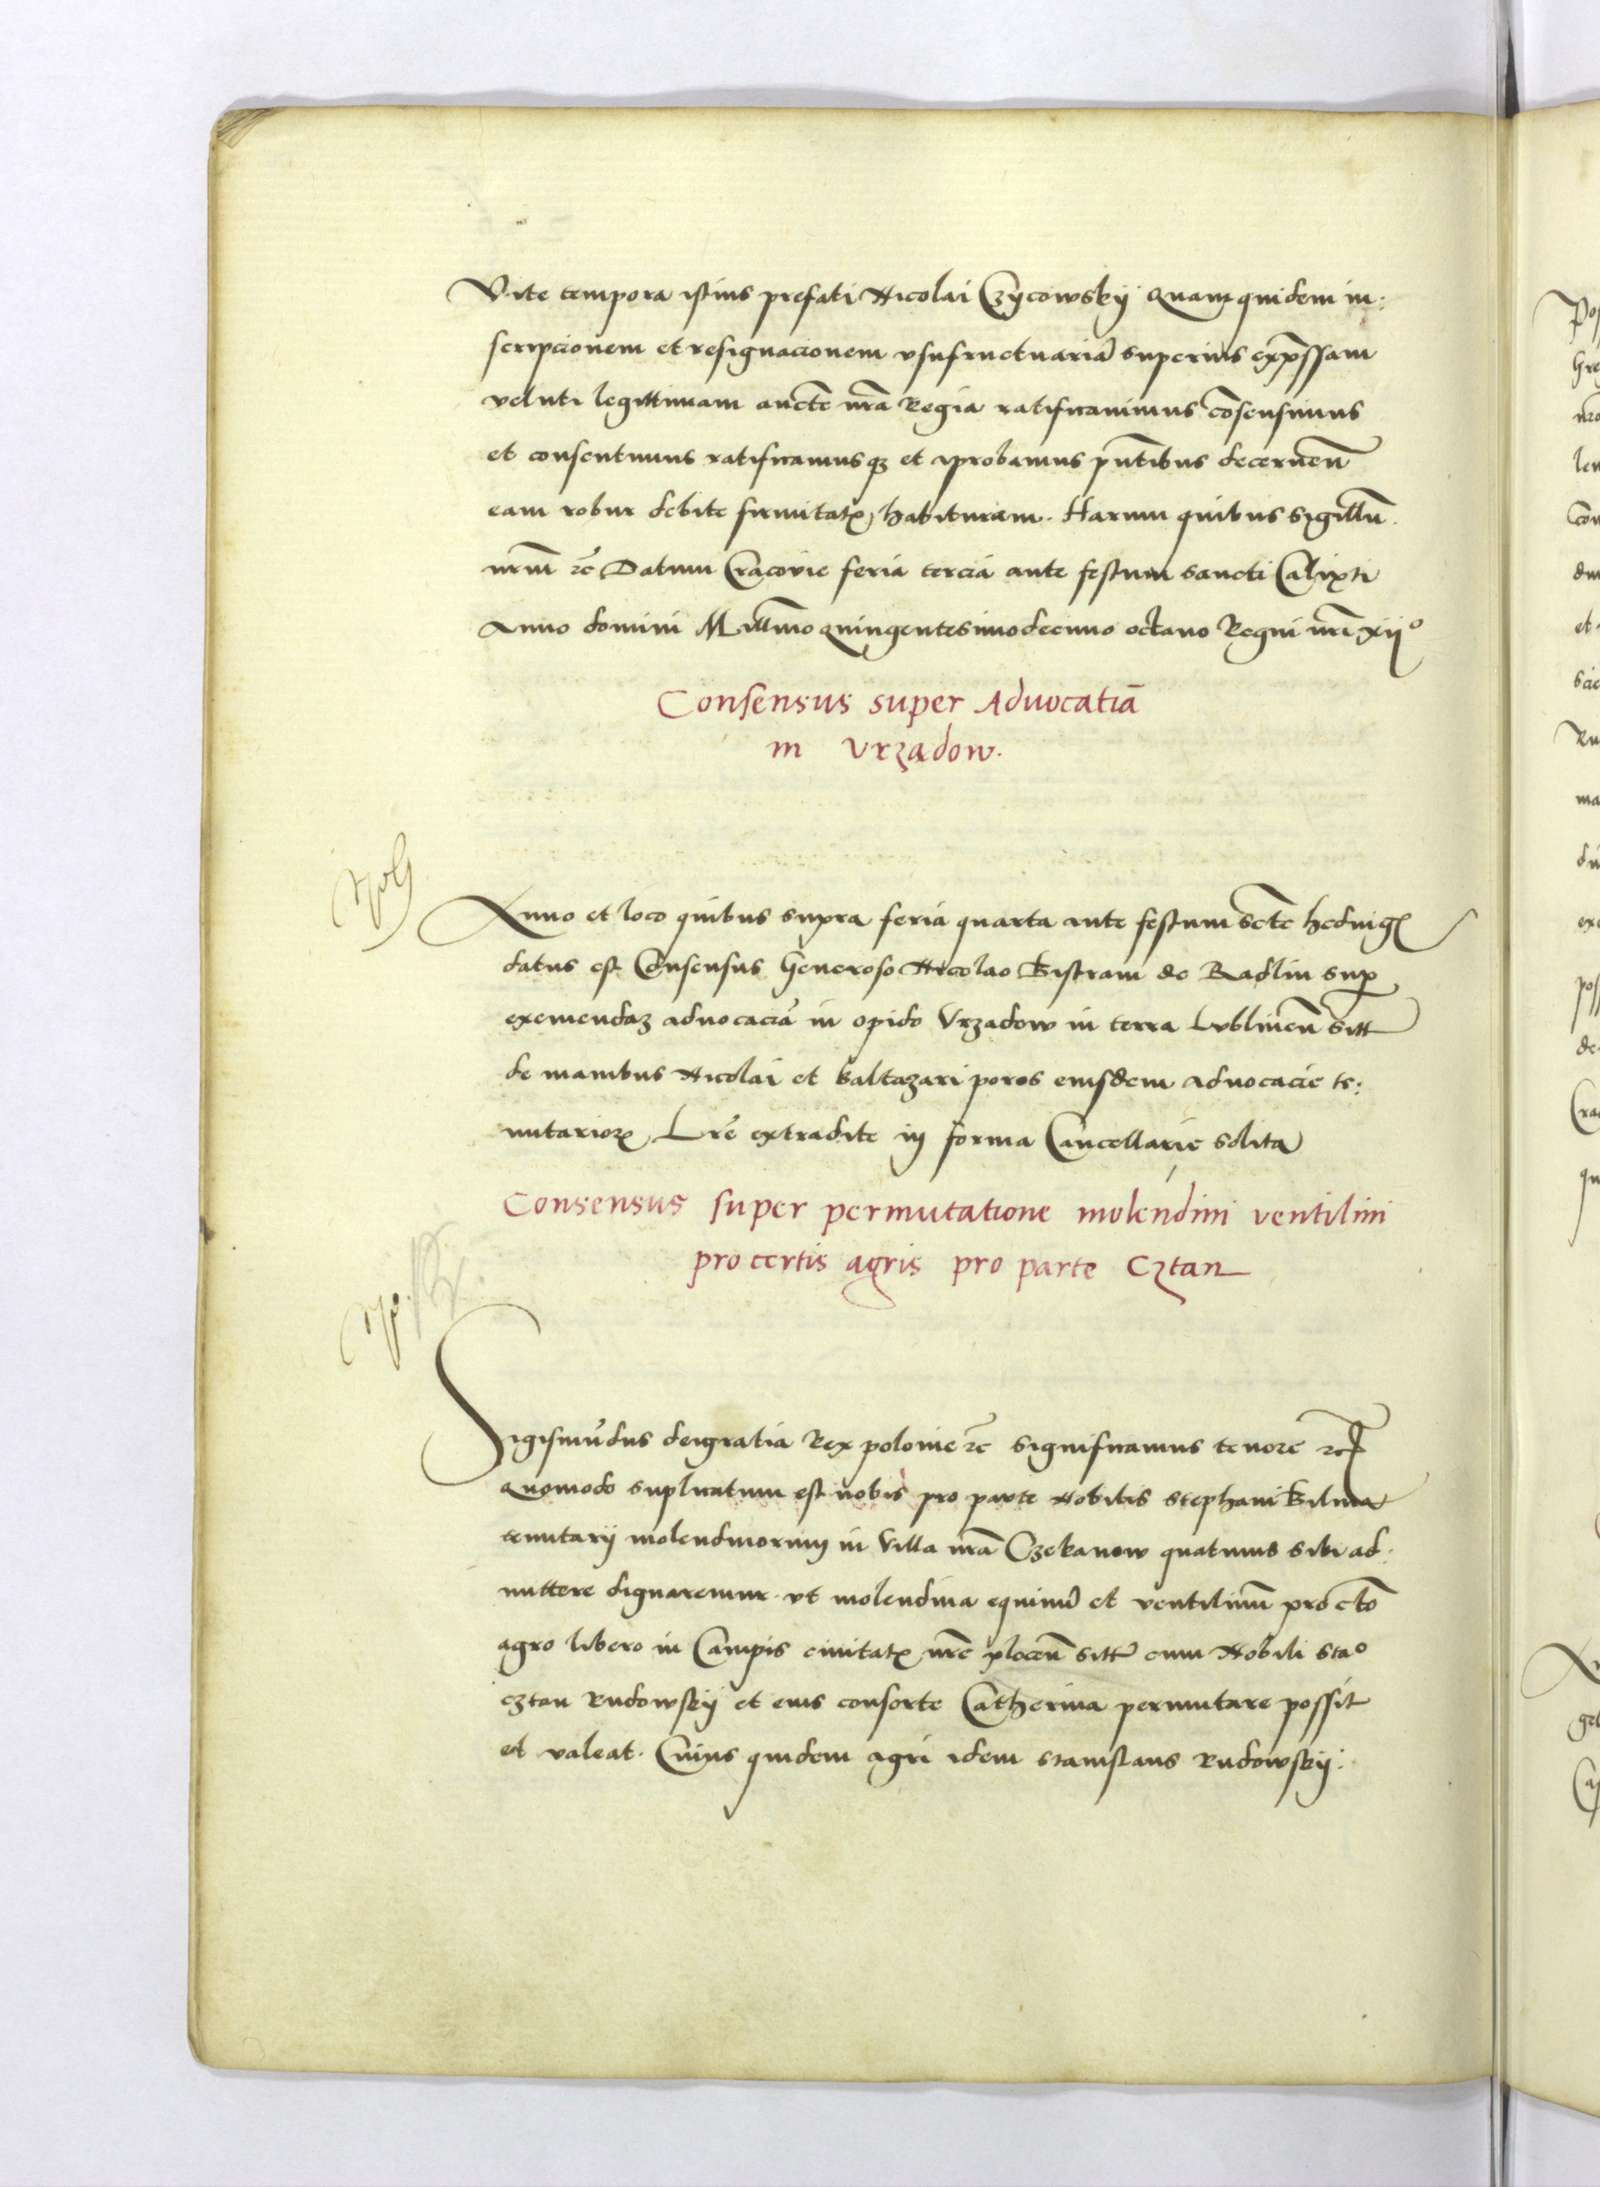 Vite tempora istius prefati Nicolai Czycowskÿ Quamquidem in:
scripcionem et resignacionem vsufructuariā superius exp̄ssam
veluti legittimam aucte nrā Regia ratificauimus cōsensimus
et consentimus ratificamusqz et aprobamus pn̄tibus decernen̄
eam robur debite firmitatꝭ habituram. Harum quibus sigillū.
nrm̄ ꝛc̄ Datum Cracovie feria tercia ante festum sancti Calixti
Anno domini Millm̄o Quingentesimodecimo octauo Regni nrī xii°
Consensus super Aduocatiā
in Vrzadow.
Anno et loco quibus supra feria quarta ante festum scte heduigꝭ
datus est Consensus Generoso Nicolao Bistram de Radlin sup
exemendaz aduocaciā in opido Vrzadow in terra Lublinen̄ sitt
de manibus Nicolai et Baltazari poros eiusdem aduocacie te:
nutarioꝝ Lrē extradite in forma Cancellarie solita
Consensus super permutatione molendini ventilini
pro certis agris pro parte Cztan
Sigismūdus deigratia Rex polonie ꝛc̄ significamus tenore ꝛc̄
Quomodo suplicatum est nobis pro parte Nobilis Stephani Bilina
tenutarÿ molendinorum in Villa nrā Czekanow quatinus sibi ad:
mittere dignaremur. vt molendina equinū et ventilinū pro cto
agro libero in Campis ciuitatꝭ nrē plocen̄ sitt cum Nobili sta°
cztan Rudowskÿ et eius consorte Catherina permutare possit
et valeat. Cuius quidem agri idem stanislaus Rudowskÿ: